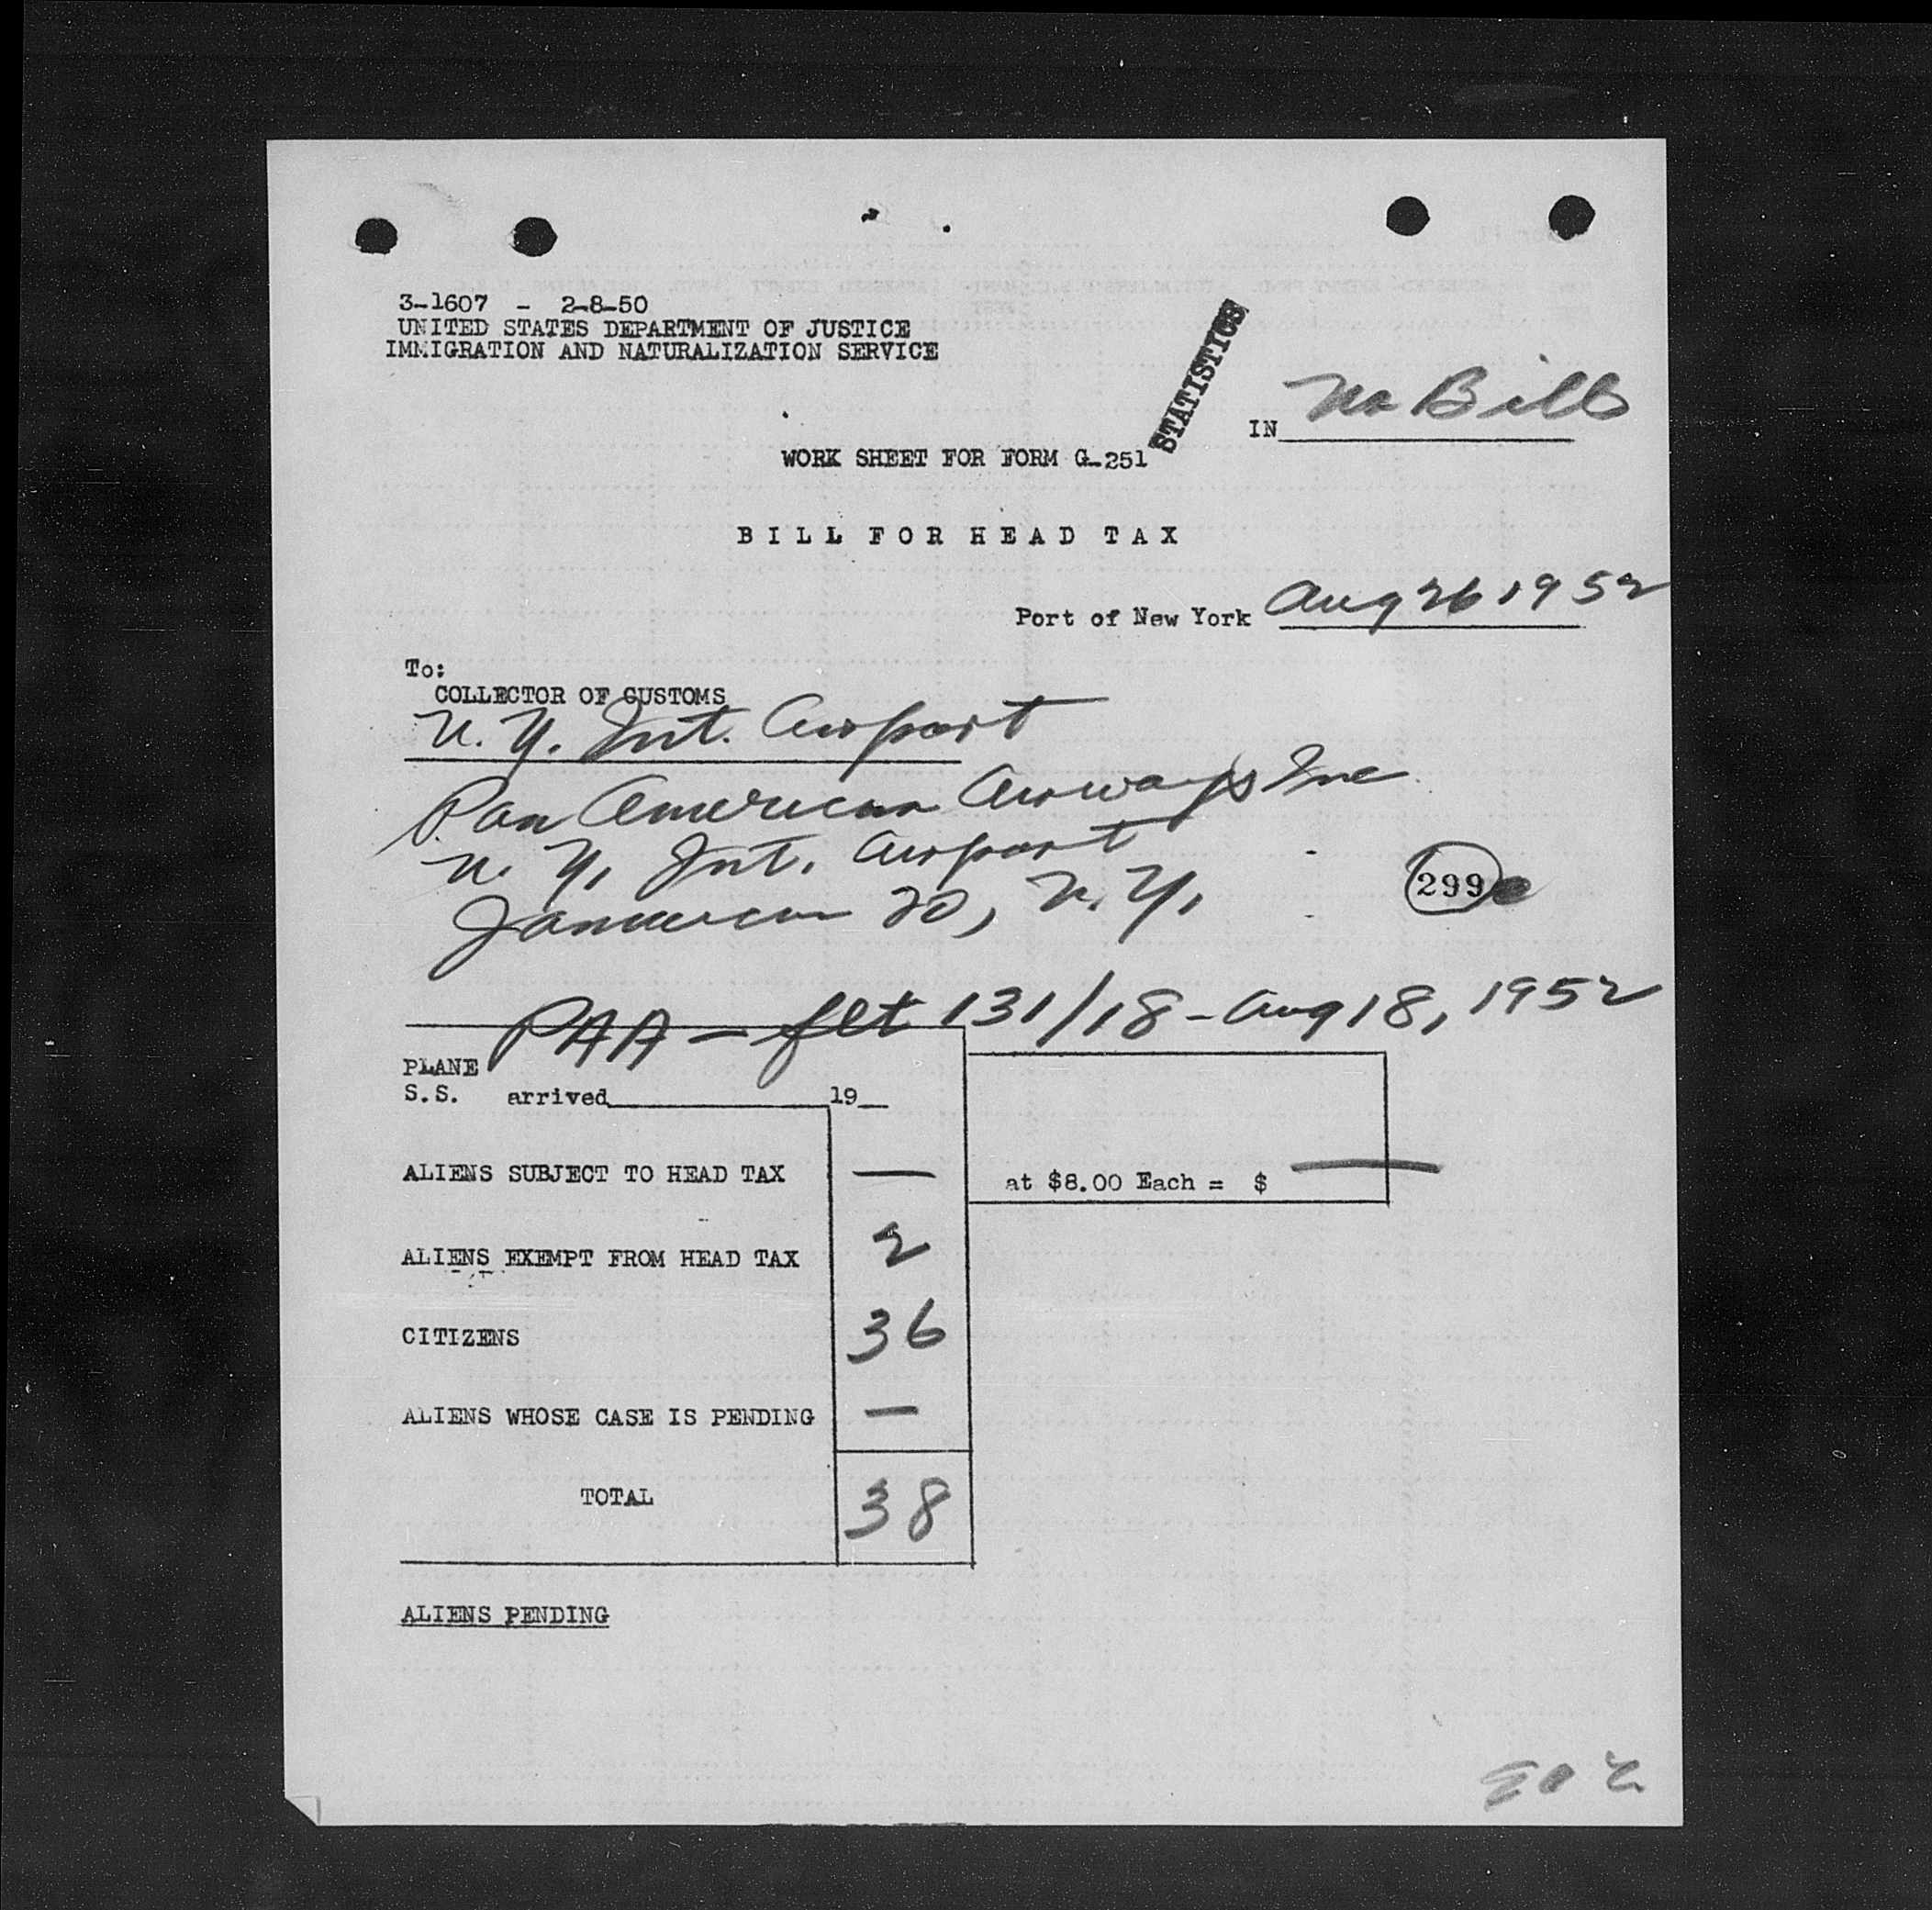 3-1607 - 2-8-50
UNITED STATES DEPARTMENT OF JUSTICE
IMMIGRATION AND NATURALIZATION SERVICE
STATISTICS
IN No Bill
WORK SHEET FOR FORM G-251
BILL FOR HEAD TAX
Port of New York Aug 26 1952
To:
COLLECTOR OF CUSTOMS
N. Y. Int. Airport
Pan American Airways Inc
N. Y. Int. Airport
Jamaica 30, N. Y.
299
PAA - flt 131/18 - Aug 18, 1952
PLANE
S.S. arrived 19
ALIENS SUBJECT TO HEAD TAX — at $8.00 Each = $ —
ALIENS EXEMPT FROM HEAD TAX 2
CITIZENS 36
ALIENS WHOSE CASE IS PENDING —
TOTAL 38
ALIENS PENDING